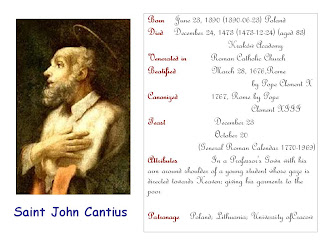 Born June 23, 1390 (1390-06-23) Poland
Died December 24, 1473 (1473-12-24) (aged 83)
Kraków Academy
Venerated in Roman Catholic Church
Beatified March 28, 1676, Rome
by Pope Clement X
Canonized 1767, Rome by Pope
Clement XIII
Feast December 23
October 20
(General Roman Calendar 1770-1969)
Attributes In a Professor's Gown with his
arm around shoulder of a young student whose gaze is
directed towards Heaven; giving his garments to the
poor
Patronage Poland, Lithuania, University ofCracow
Saint John Cantius